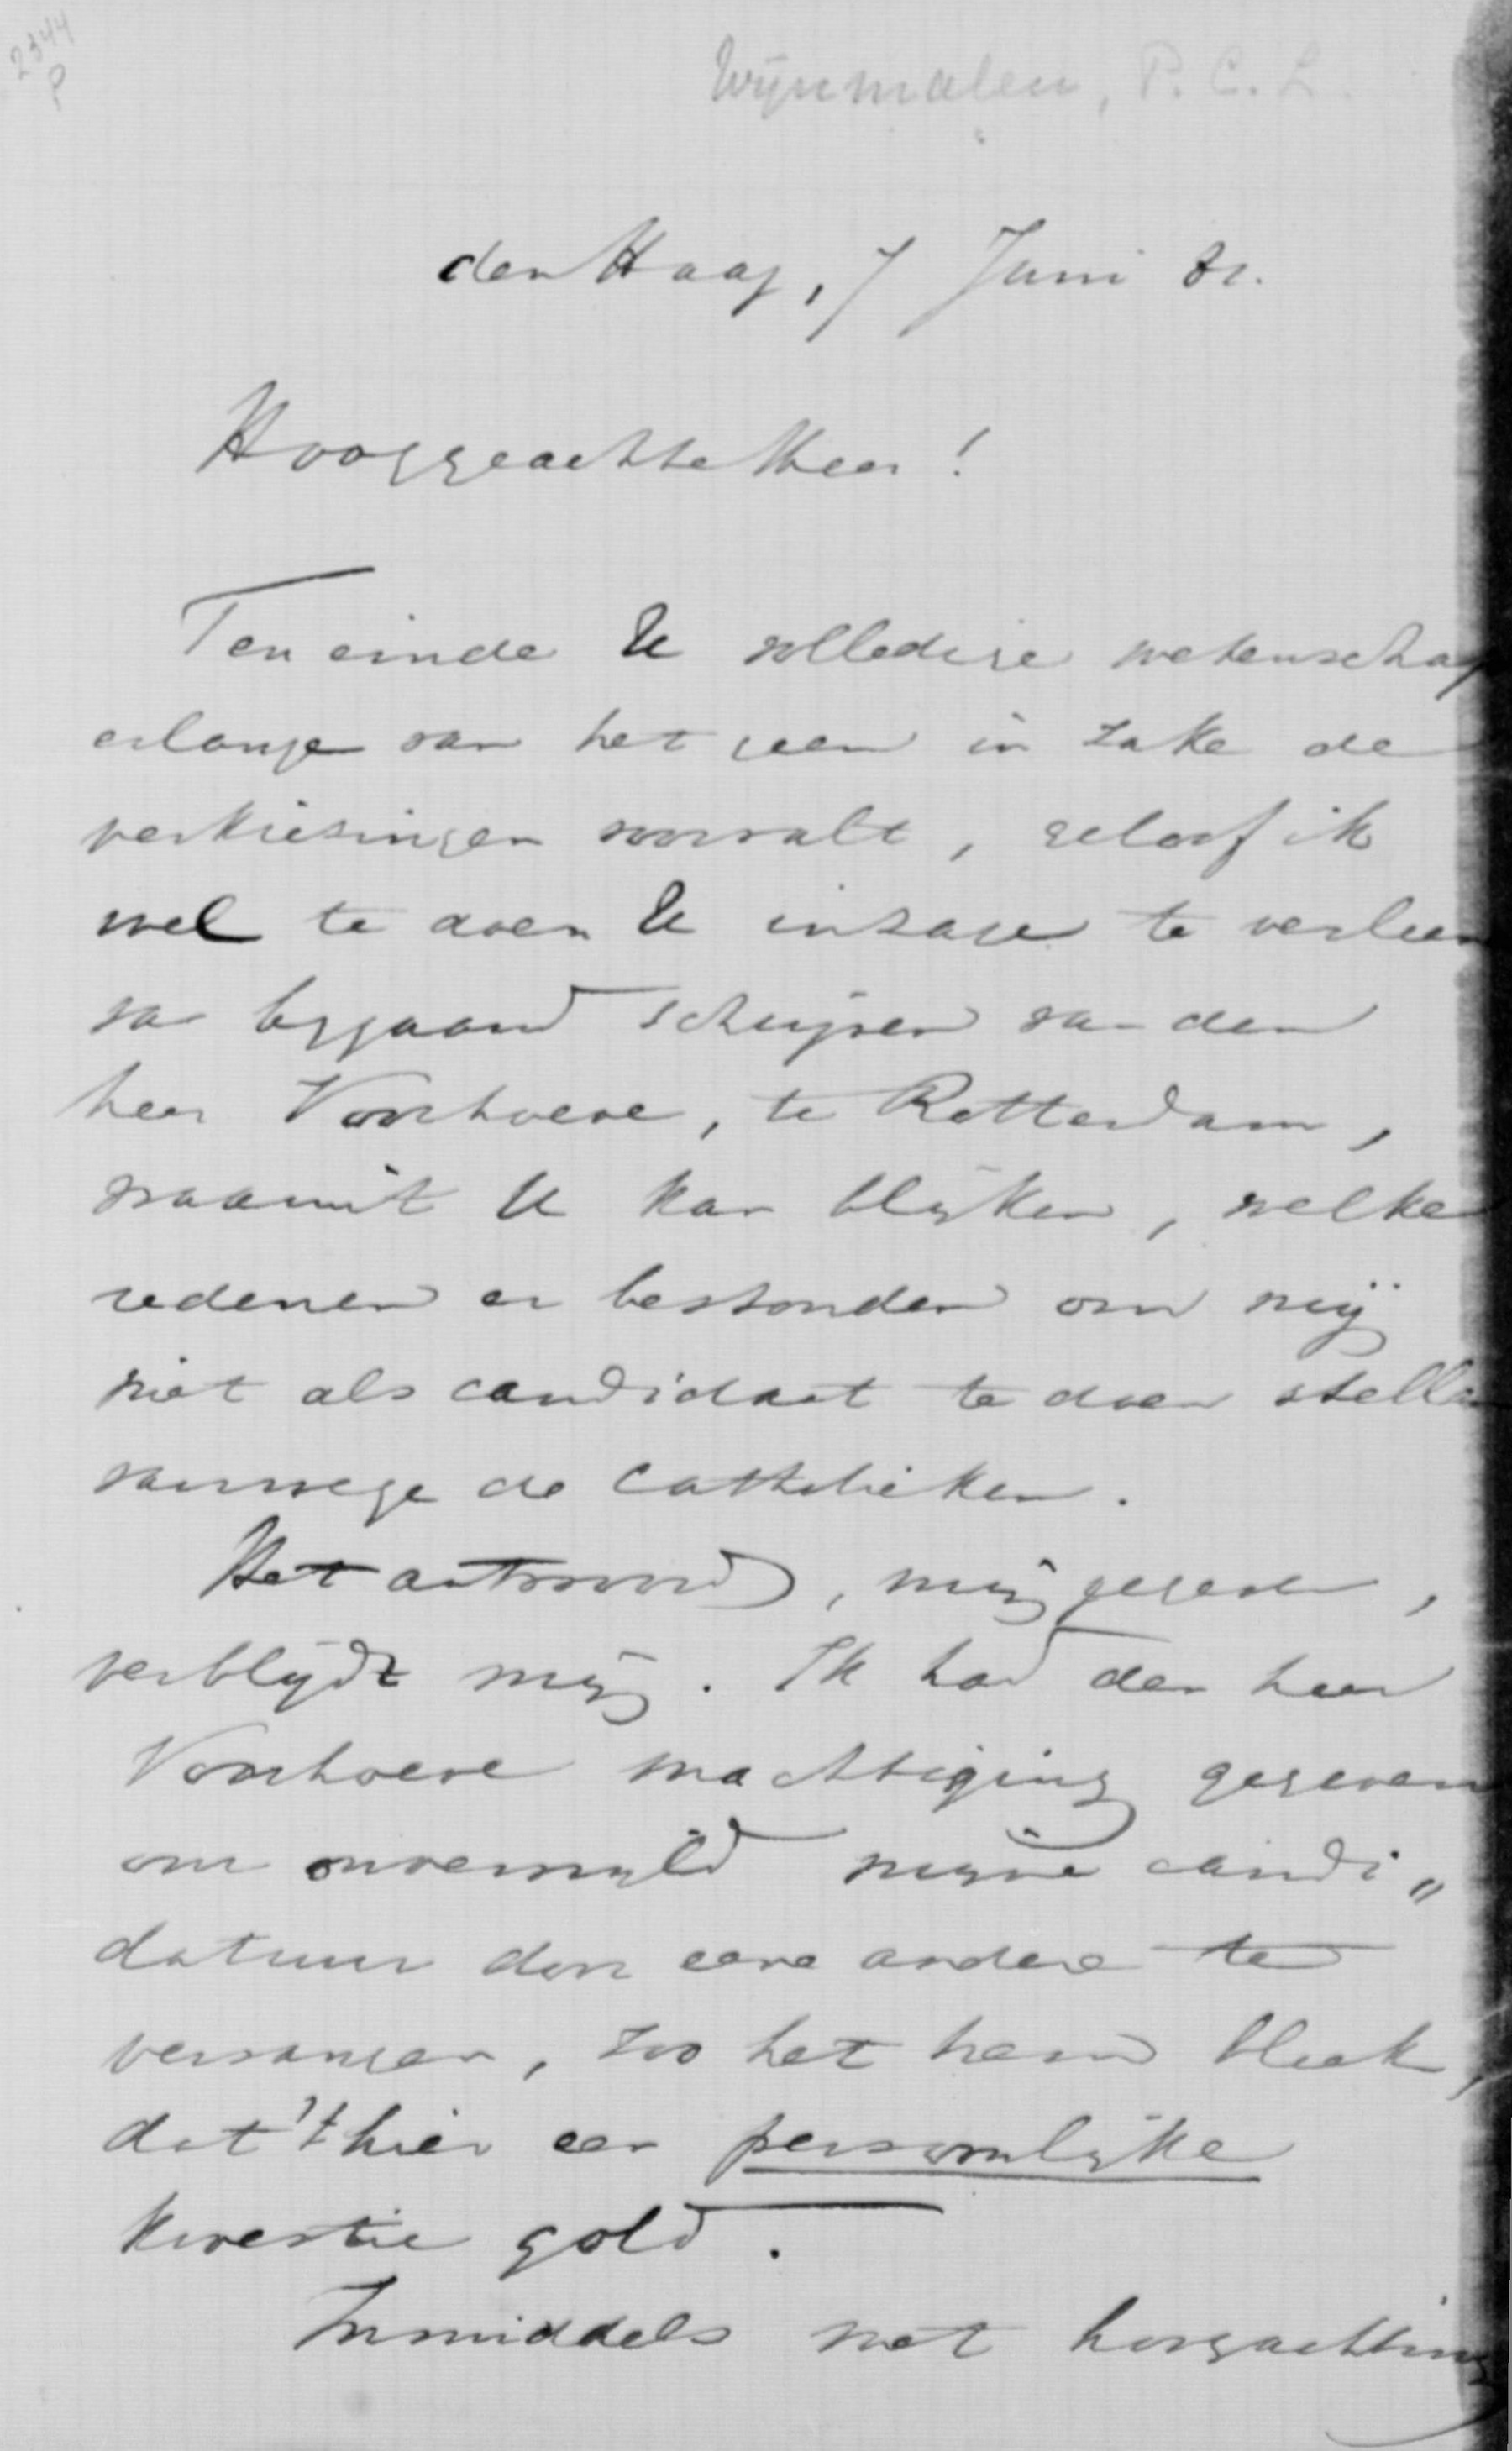 2344
P
Wijnmalen, P. C. L.
den Haag, 7 Juni 81.
Hooggeachte Heer!
Ten einde U volledige wetenschap
erlange van het geen in zake de
verkiezingen voorvalt, geloof ik
wel te doen U inzage te verleen
van bijgaand schrijven van den
heer Voorhoeve, te Rotterdam,
waaruit U kan blijken, welke
redenen er bestonden om mij
niet als candidaat te doen stellen
vanwege de Catholieken.
Het antwoord, mij gegeven,
verblijdt mij. Ik had den heer
Voorhoeve machtiging gegeven
om onverwijld mijne candi„
datuur door eene andere te
vervangen, zoo het hem bleek,
dat 't hier een persoonlijke
kwestie gold.
Inmiddels met hoogachting